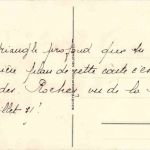 triangle profond que tu
plan de cette carte c'es
des Roches, vu de la
llet 31!